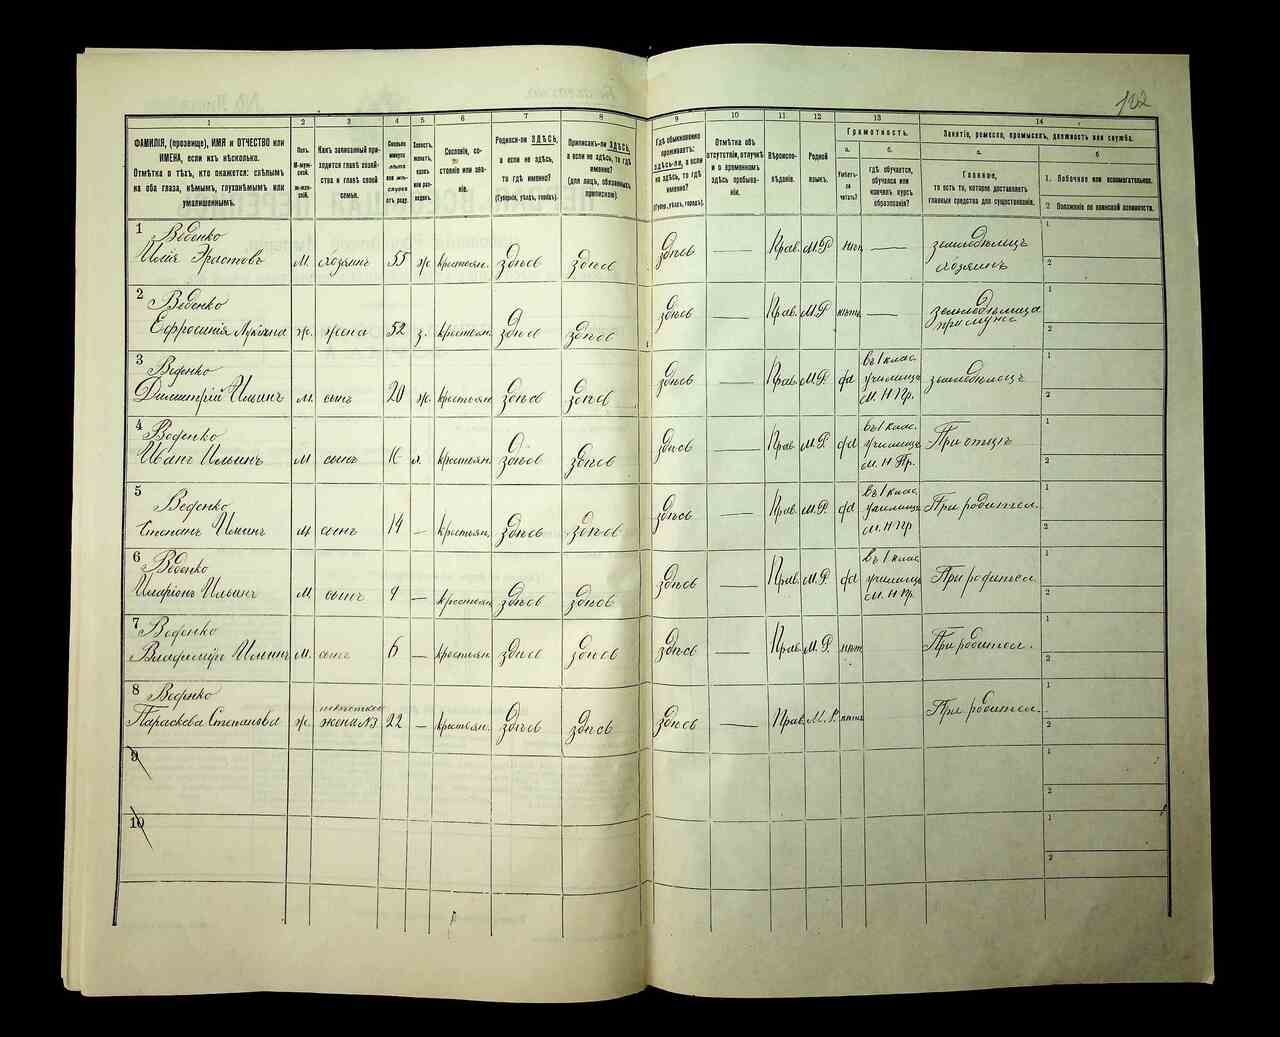 102
1 2 3 4 5 6 7 8 9 10 11 12 13 14
ФАМИЛІЯ, (прозвище), ИМЯ и ОТЧЕСТВО или
ИМЕНА, если ихъ нѣсколько.
Отмѣтка о тѣхъ, кто окажется: слѣпымъ
на оба глаза, нѣмымъ, глухонѣмымъ или
умалишеннымъ.
Полъ
М-муж-
ской.
ж-жен-
скій.
Какъ записанный при-
ходится главѣ хозяй-
ства и главѣ своей
семьи.
Сколько
минуло
лѣтъ
или мѣ-
сяцевъ
отъ роду.
Холостъ,
женатъ,
вдовъ
или раз-
веденъ.
Сословіе, со-
стояніе или зва-
ніе.
Родился-ли ЗДѢСЬ,
а если не здѣсь,
то гдѣ именно?
(Губернія, уѣздъ, городъ).
Приписанъ-ли ЗДѢСЬ,
а если не здѣсь, то гдѣ
именно?
(для лицъ, обязанныхъ
припиской).
Гдѣ обыкновенно
проживаетъ:
здѣсь-ли, а если
не здѣсь, то гдѣ
именно?
(Губерн., уѣздъ, городъ).
Отмѣтка объ
отсутствіи, отлучкѣ
и о временномъ
здѣсь пребыва-
ніи.
Вѣроиспо-
вѣданіе.
Родной
языкъ.
Грамотность.
а.
Умѣетъ-
ли
читать?
б.
гдѣ обучается,
обучался или
кончилъ курсъ
образованія?
Занятіе, ремесло, промыселъ, должность или служба.
а.
Главное,
то есть то, которое доставляетъ
главныя средства для существованія.
б
1. Побочное или вспомогательное.
2 Положеніе по воинской повинности.
1 Веденко
Илія Эрастовъ м. хозяинъ 55 ж. крестьян. здѣсь здѣсь здѣсь — Прав. М.Р нѣт — земледѣлецъ
хозяинъ
1
2
2 Веденко
Ефросинія ж. жена 52 з. крестьян. здѣсь здѣсь здѣсь — Прав. М.Р нѣт — земледѣлица
при мужѣ
1
2
3 Веденко
Димитрій Ильинъ м. сынъ 20 ж. крестьян. здѣсь здѣсь здѣсь — Прав. М.Р. да въ 1 клас.
училищѣ
М. Н Пр. земледѣлецъ
1
2
4 Веденко
Иванъ Ильинъ м сынъ 16 х. крестьян. здѣсь здѣсь здѣсь — Прав. М.Р да въ 1 клас.
училищѣ
М. Н Пр. При отцѣ
1
2
5 Веденко
Степанъ Ильинъ м сынъ 14 — крестьян. здѣсь здѣсь здѣсь — Прав. М.Р. да въ 1 клас.
училищѣ
М. Н Пр При родител.
1
2
6 Веденко
Иларіонъ Ильинъ м. сынъ 9 — крестьян здѣсь здѣсь здѣсь — Прав. М.Р да въ 1 клас
училищѣ
М. Н Пр. При родител
1
2
7 Веденко
Владиміръ Ильинъ м. сынъ 6 — крестьян. здѣсь здѣсь здѣсь — Прав. М.Р. нѣт При родител.
1
2
8 Веденко
Параскева Степанова ж. жена №3 22 — крестьян. здѣсь здѣсь здѣсь — Прав. М.Р. нѣт При родител.
1
2
9
1
2
10
1
2